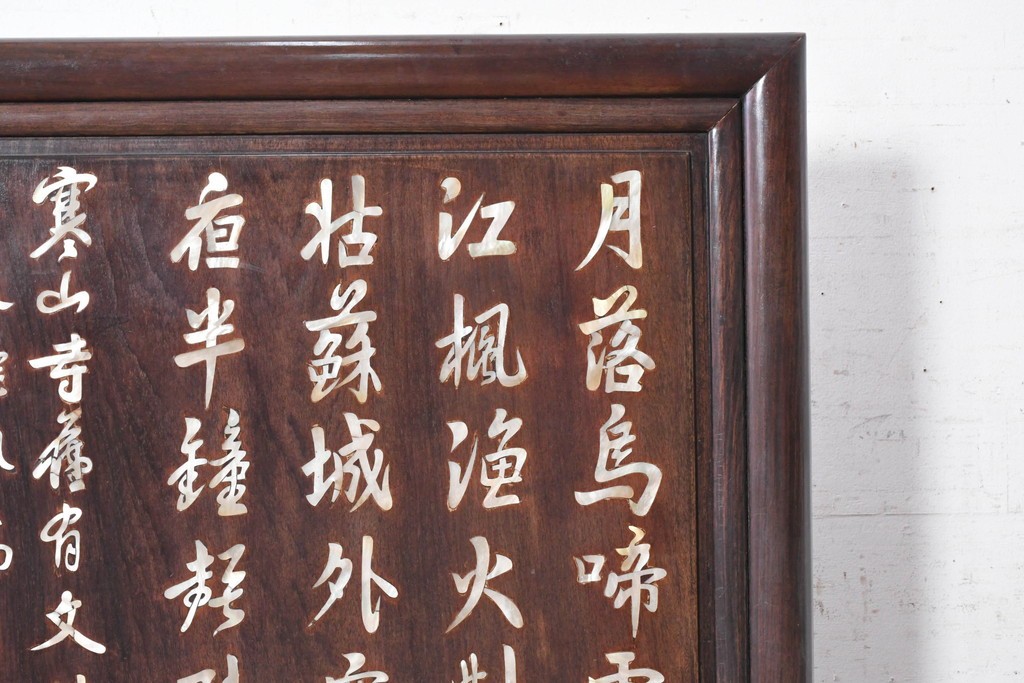 月落烏啼
江楓漁火
姑蘇城外
夜半鐘聲
寒山寺舊有文